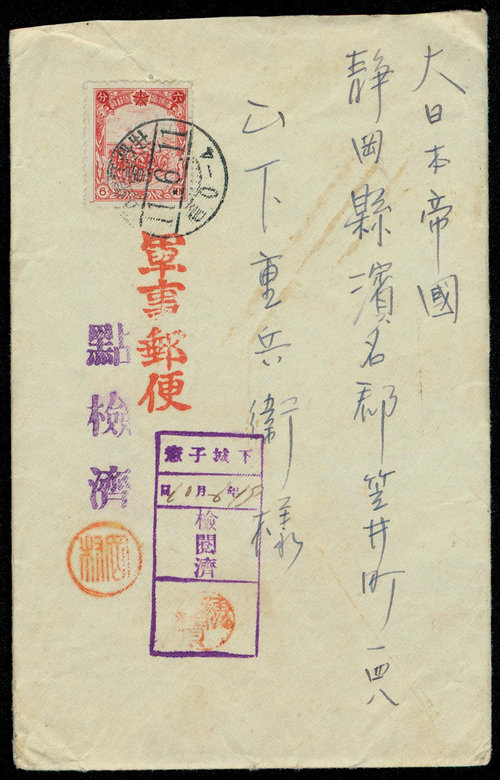 大日本帝國
静岡縣濱名郡笠井町一四八
山下重兵衛様
六分
6
11.9.11
0-4
軍事郵便
點檢濟
下城子
年 月 日
檢閲濟